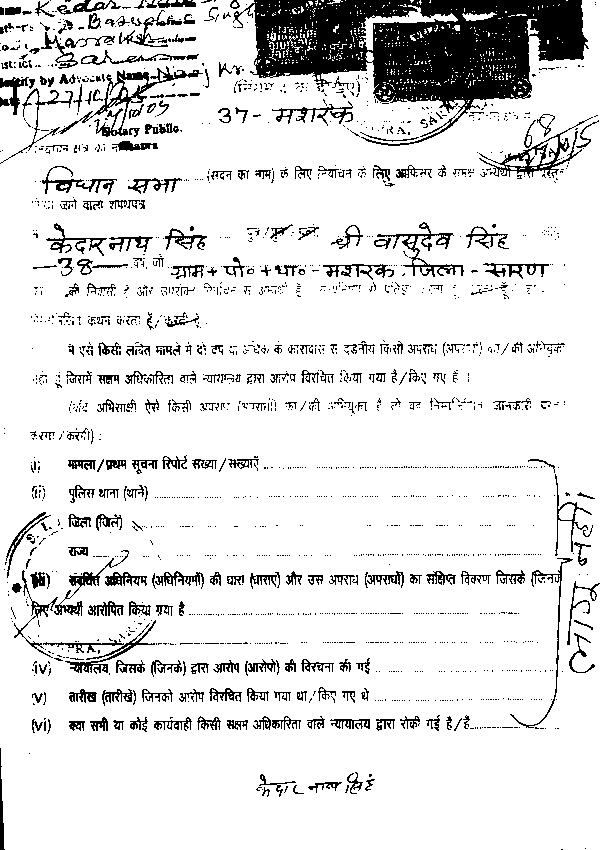 Kedar Nath
Singh
Basudev
Masrakh
Saran
Identify by Advocate Name
27/10/05
Notary Public
Chapra
37 - मशरक
68
विधान सभा (सदन का नाम) के लिए निर्वाचन के लिए आफिसर के समक्ष अभ्यर्थी द्वारा प्रस्तुत
किया जाने वाला शपथपत्र
केदारनाथ सिंह पुत्र/ श्री वासुदेव सिंह
38 वर्ष, जो ग्राम + पो० + था० - मशरक जिला - सारण
की निवासी हूँ और उपरोक्त निर्वाचन से अभ्यर्थी हूँ
निम्नलिखित कथन करता हूँ/करती हूँ
मैं ऐसे किसी लंबित मामले में दो वर्ष या अधिक के कारावास से दंडनीय किसी अपराध (अपराधों) का/की अभियुक्त
नहीं हूँ जिसमें सक्षम अधिकारिता वाले न्यायालय द्वारा आरोप विरचित किया गया है/किए गए हैं ।
(यदि अभिसाक्षी ऐसे किसी अपराध (अपराधों) का/की अभियुक्त है तो वह निम्नलिखित जानकारी प्रदान
करेगा/करेगी) :
(i) मामला/प्रथम सूचना रिपोर्ट संख्या/संख्याएँ
(ii) पुलिस थाना (थाने)
जिला (जिले)
राज्य
(iii) संबंधित अधिनियम (अधिनियमों) की धारा (धाराएं) और उस अपराध (अपराधों) का संक्षिप्त विवरण जिसके (जिनके)
लिए अभ्यर्थी आरोपित किया गया है
(iv) न्यायालय, जिसके (जिनके) द्वारा आरोप (आरोपों) की विरचना की गई
(v) तारीख (तारीखें) जिनको आरोप विरचित किया गया था/किए गए थे
(vi) क्या सभी या कोई कार्यवाही किसी सक्षम अधिकारिता वाले न्यायालय द्वारा रोकी गई है/हैं
लागू नहीं।
केदार नाथ सिंह